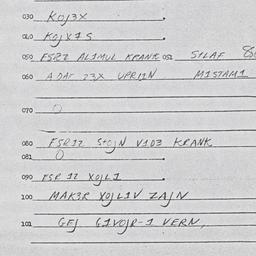 030 KOJ3X
040 KOJX1S
050 FSRZ AL1MUL KRANK 052 S1LAF
060 A DAY 23X UPRIIN M1STAM1
070
080 FSR12 StOJN V1D3 KRANK
081 0
090 FSR 12 XOJL1
100 MAK3R XOJL1V ZAJN
101 GEJ G1VOJR-1 VERN,